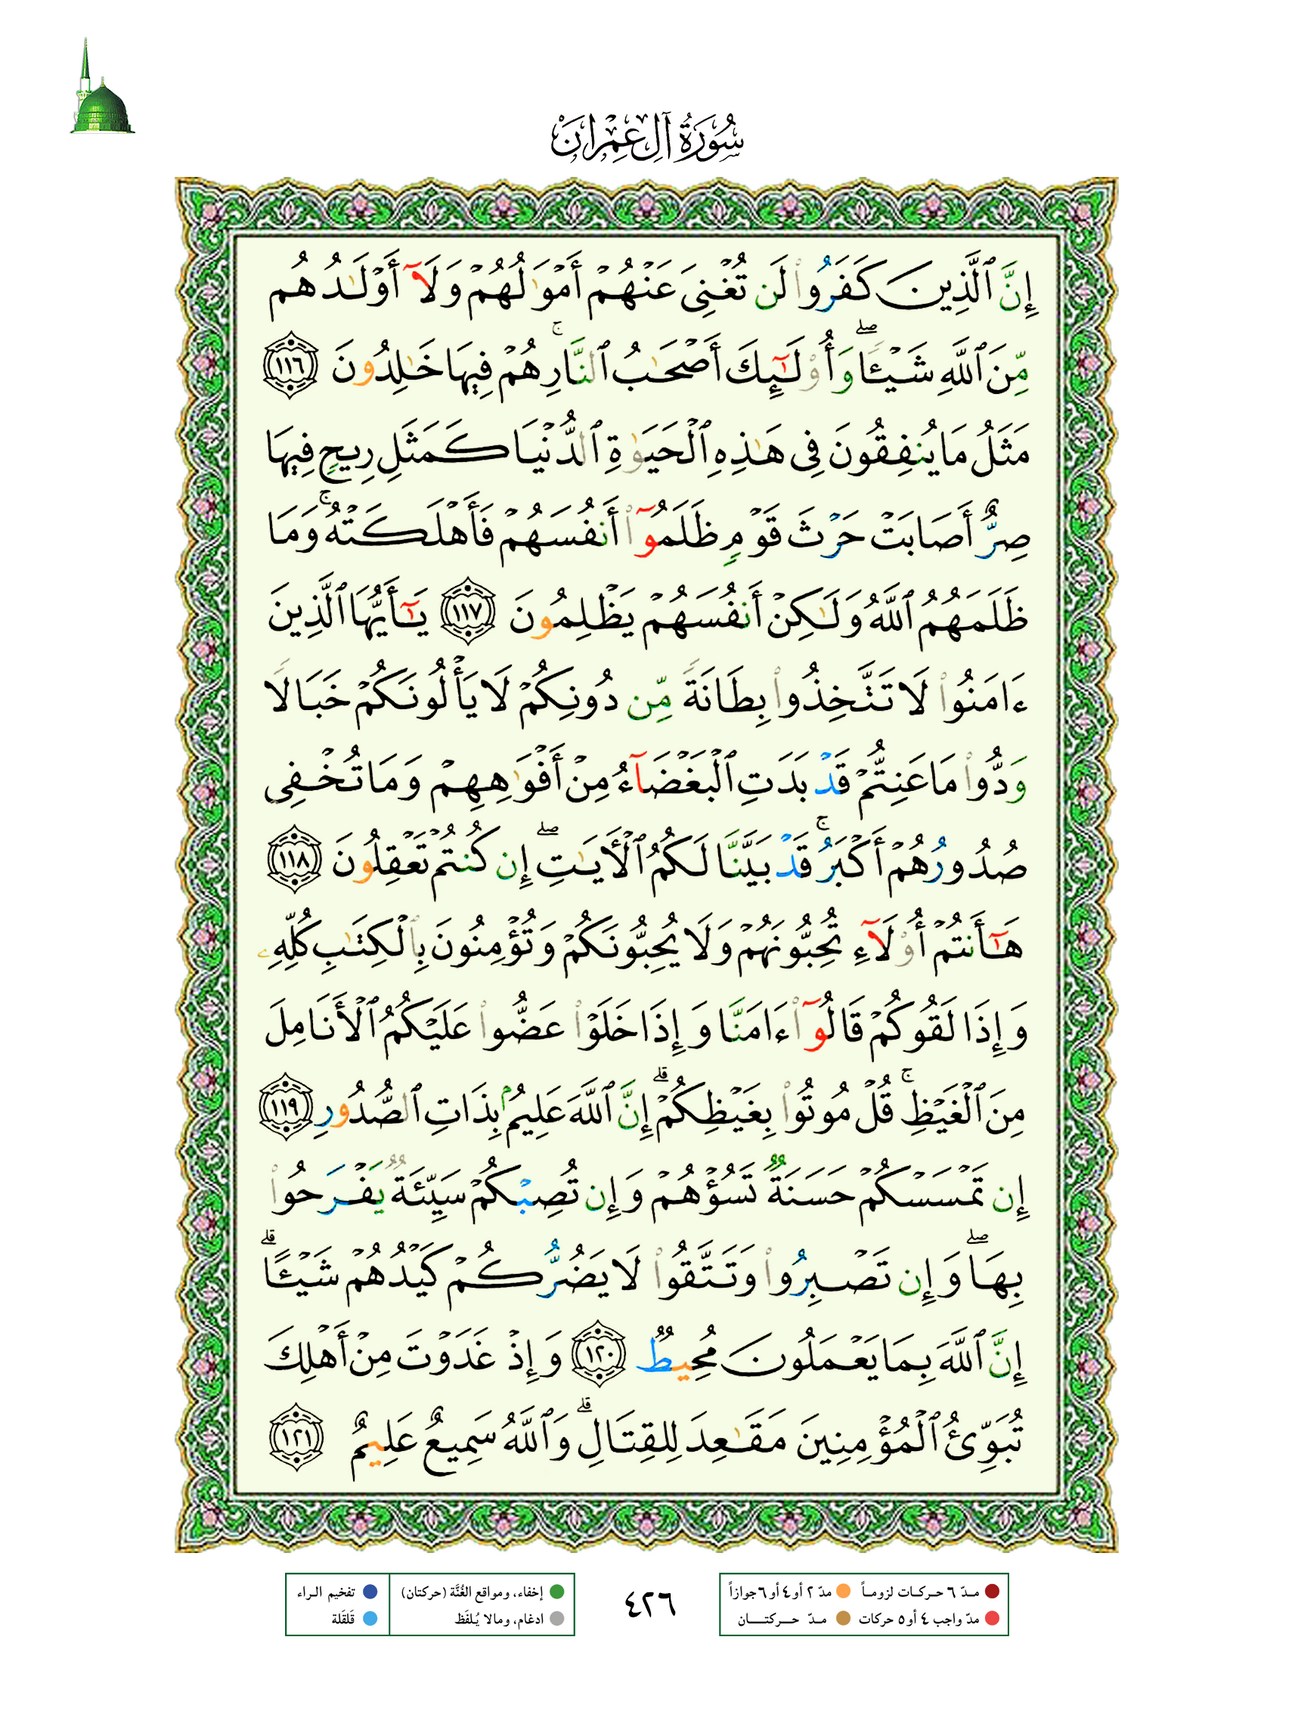 سُورَةُ آلِ عِمْرَانَ
إِنَّ ٱلَّذِينَ كَفَرُوا۟ لَن تُغْنِىَ عَنْهُمْ أَمْوَٰلُهُمْ وَلَآ أَوْلَـٰدُهُم
مِّنَ ٱللَّهِ شَيْـًٔا ۖ وَأُو۟لَـٰٓئِكَ أَصْحَـٰبُ ٱلنَّارِ ۚ هُمْ فِيهَا خَـٰلِدُونَ ١١٦
مَثَلُ مَا يُنفِقُونَ فِى هَـٰذِهِ ٱلْحَيَوٰةِ ٱلدُّنْيَا كَمَثَلِ رِيحٍ فِيهَا
صِرٌّ أَصَابَتْ حَرْثَ قَوْمٍ ظَلَمُوٓا۟ أَنفُسَهُمْ فَأَهْلَكَتْهُ ۚ وَمَا
ظَلَمَهُمُ ٱللَّهُ وَلَـٰكِنْ أَنفُسَهُمْ يَظْلِمُونَ ١١٧ يَـٰٓأَيُّهَا ٱلَّذِينَ
ءَامَنُوا۟ لَا تَتَّخِذُوا۟ بِطَانَةً مِّن دُونِكُمْ لَا يَأْلُونَكُمْ خَبَالًا
وَدُّوا۟ مَا عَنِتُّمْ قَدْ بَدَتِ ٱلْبَغْضَآءُ مِنْ أَفْوَٰهِهِمْ وَمَا تُخْفِى
صُدُورُهُمْ أَكْبَرُ ۚ قَدْ بَيَّنَّا لَكُمُ ٱلْـَٔايَـٰتِ ۖ إِن كُنتُمْ تَعْقِلُونَ ١١٨
هَـٰٓأَنتُمْ أُو۟لَآءِ تُحِبُّونَهُمْ وَلَا يُحِبُّونَكُمْ وَتُؤْمِنُونَ بِٱلْكِتَـٰبِ كُلِّهِۦ
وَإِذَا لَقُوكُمْ قَالُوٓا۟ ءَامَنَّا وَإِذَا خَلَوْا۟ عَضُّوا۟ عَلَيْكُمُ ٱلْأَنَامِلَ
مِنَ ٱلْغَيْظِ ۚ قُلْ مُوتُوا۟ بِغَيْظِكُمْ ۗ إِنَّ ٱللَّهَ عَلِيمُۢ بِذَاتِ ٱلصُّدُورِ ١١٩
إِن تَمْسَسْكُمْ حَسَنَةٌ تَسُؤْهُمْ وَإِن تُصِبْكُمْ سَيِّئَةٌ يَفْرَحُوا۟
بِهَا ۖ وَإِن تَصْبِرُوا۟ وَتَتَّقُوا۟ لَا يَضُرُّكُمْ كَيْدُهُمْ شَيْـًٔا ۗ
إِنَّ ٱللَّهَ بِمَا يَعْمَلُونَ مُحِيطٌ ١٢٠ وَإِذْ غَدَوْتَ مِنْ أَهْلِكَ
تُبَوِّئُ ٱلْمُؤْمِنِينَ مَقَـٰعِدَ لِلْقِتَالِ ۗ وَٱللَّهُ سَمِيعٌ عَلِيمٌ ١٢١
مـدّ ٦ حـركـات لزومـاً مدّ ٢ أو ٤ أو ٦ جوازاً
مدّ واجب ٤ أو ٥ حركات مـدّ حـــركتـــــان
٤٢٦
إخفاء، ومواقع الغُنَّة (حركتان) تفخيم الـراء
ادغام، ومالا يُـلفَظ قَلقَلة